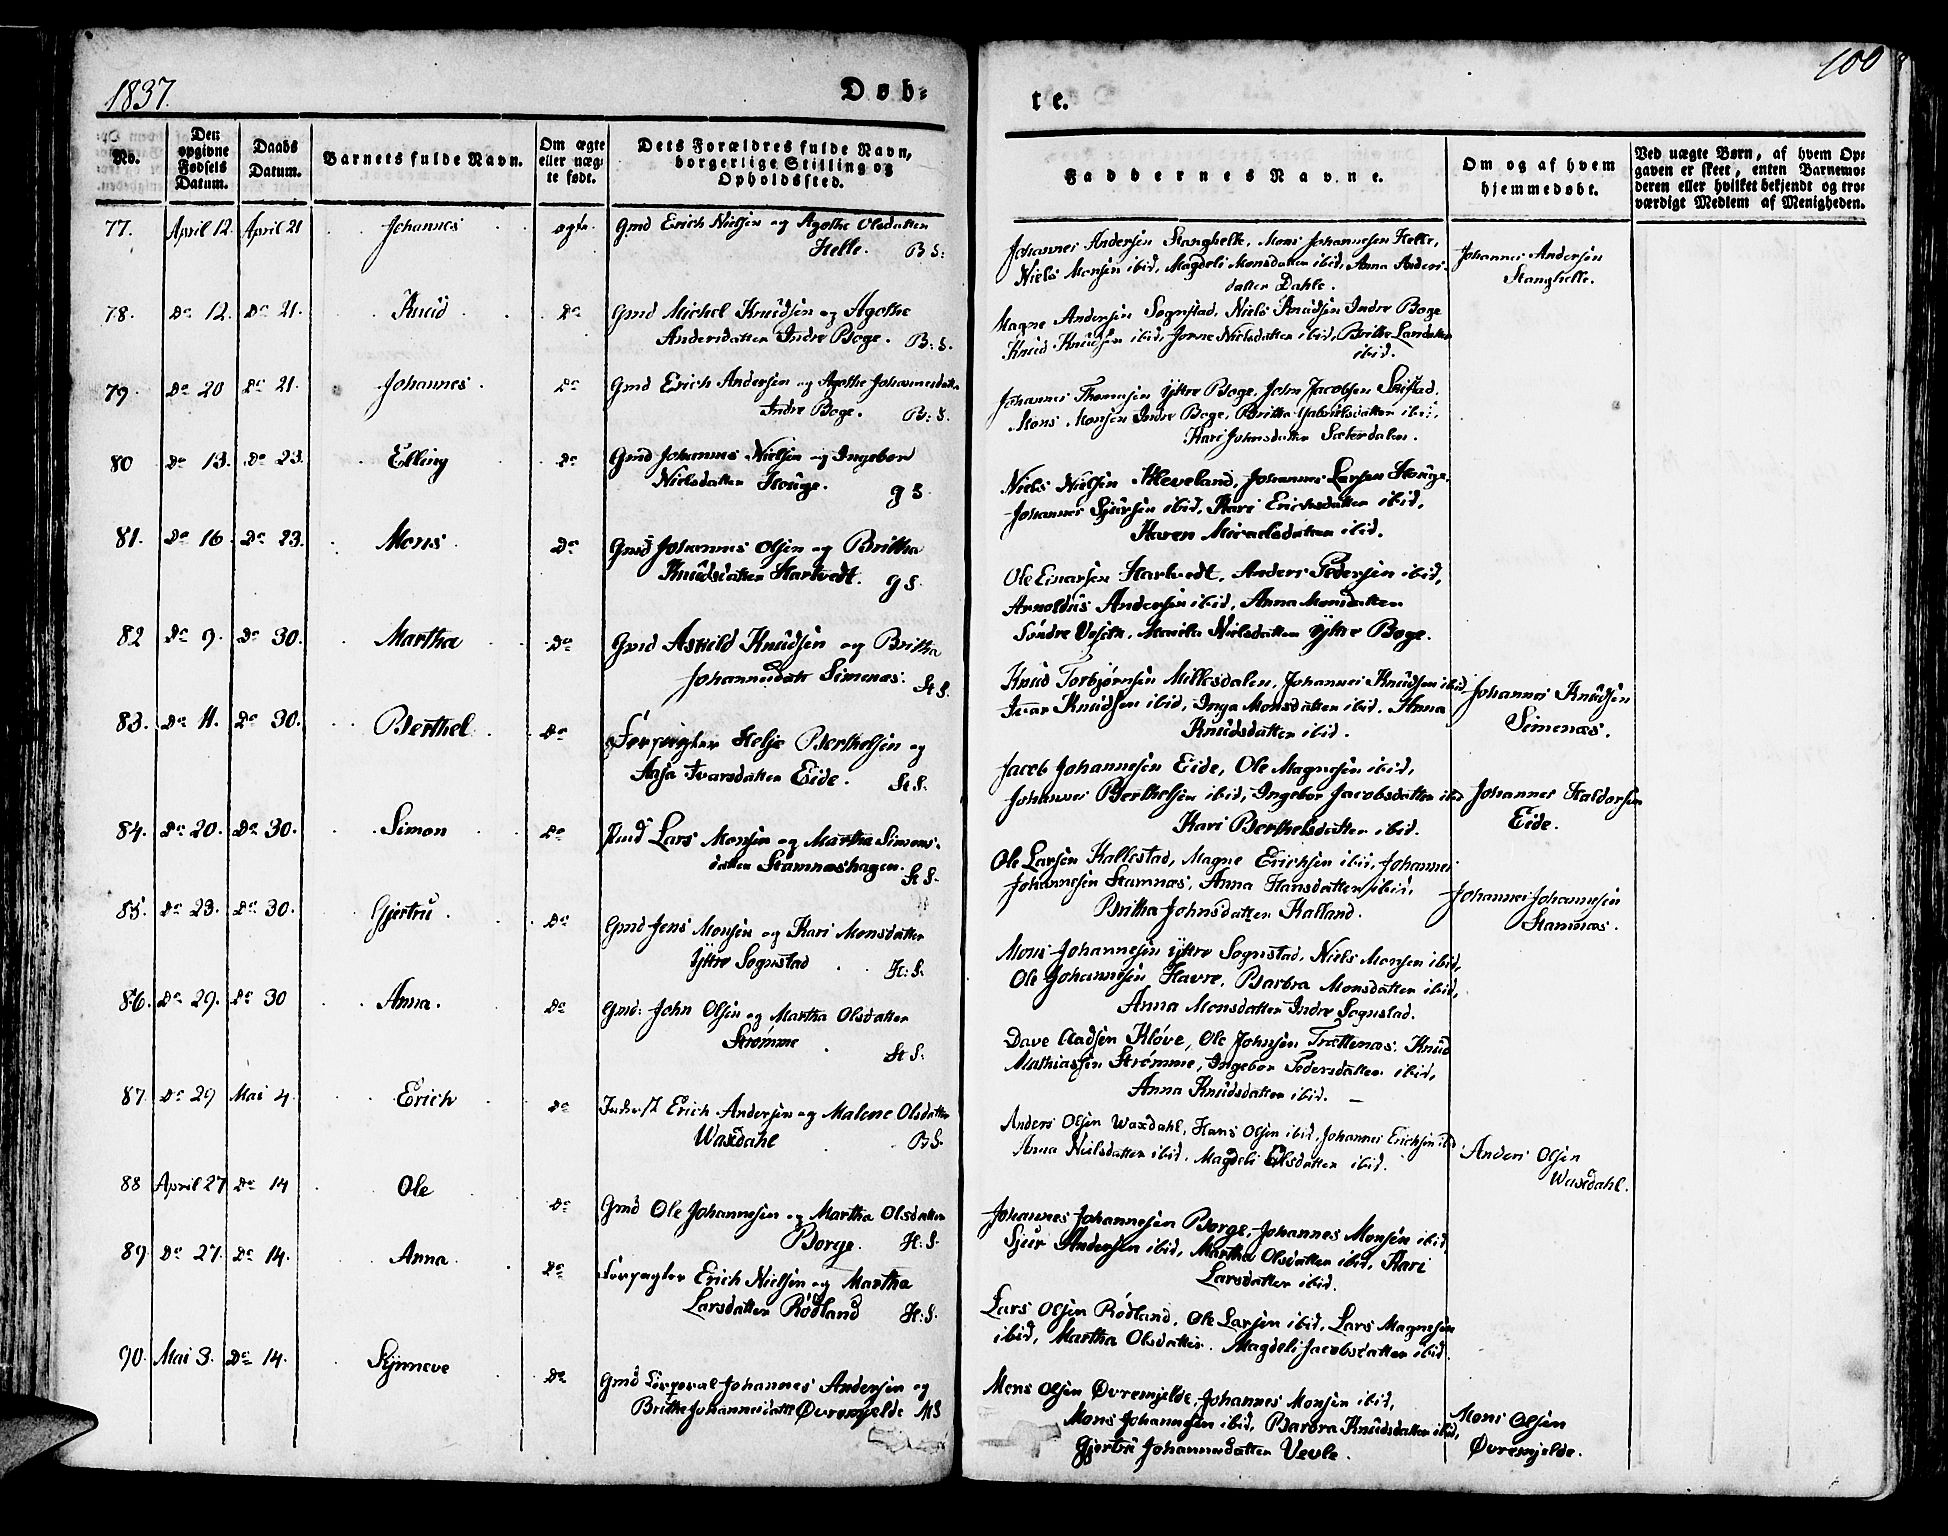 1837.
Døb=
te.
100
No.
Den opgivne Fødsels Datum.
Daabs Datum.
Barnets fulde Navn.
Om ægte eller uæg- te født.
Dets Forældres fulde Navn, borgerlige Stilling og Opholdssted.
Faddernes Navne.
Om og af hvem hjemmedøbt.
Ved uægte Børn, af hvem Op- gaven er skeet, enten Barnemo- deren eller hvilket bekjendt og tro- værdigt Medlem af Menigheden.
77. April 12. April 21 Johannes ægte. Gmd Erich Nielsen og Agathe Olsdatter
Helle. B S:
Johannes Andersen Stanghelle, Mons Johannesen Helle,
Niels Monsen ibid, Magdeli Monsdatter ibid, Anna Anders-
datter Dahle.
Johannes Andersen
Stanghelle.
78. Do 12. Do 21. Knud Do Gmd Michel Knudsen og Agathe
Andersdatter Indre Boge. B: S.
Magne Andersen Sognstad, Niels Knudsen Indre Boge
Knud Knudsen ibid, Jonne Nielsdatter ibid, Britha Larsdatter
ibid.
79. Do 20 Do 21. Johannes Do Gmd Erich Andersen og Agathe Johannesdatt.
Indre Boge. B: S.
Johannes Thomasen Yttre Boge, John Jacobsen Skifstad,
Mons Monsen Indre Boge, Britha Gabrielsdatter ibid,
Kari Johnsdatter Sæterdalen.
80 Do 13. Do 23. Elling Do Gmd Johannes Nielsen og Ingebor
Nielsdatter Houge. g S
Niels Nielsen Kleveland, Johannes Larsen Houge,
Johannes Sjursen ibid, Kari Erichsdatter ibid,
Karen Michelsdatter ibid.
81. Do 16 Do 23. Mons Do Gmd Johannes Olsen og Britha
Knudsdatter Hartvedt. g S.
Ole Einarsen Hartvedt, Anders Pedersen ibid,
Arnoldus Andersen ibid, Anna Monsdatter
Søndre , Marita Nielsdatter Yttre Boge.
82 Do 9. Do 30. Martha Do Gmd Askild Knudsen og Britha
Johannesdatt Simenæs. St S.
Knud Torbjørnsen Millesdalen, Johannes Knudsen ibid
Ivar Knudsen ibid, Inga Monsdatter ibid. Anna
Knudsdatter ibid.
Johannes Knudsen
Simenæs.
83. Do 11. Do 30. Berthel Do Forpagter Helje Berthelsen og
Aasa Ivarsdatter Eide. St S.
Jacob Johannesen Eide, Ole Magnesen ibid,
Johannes Berthelsen ibid, Ingebor Jacobsdatter ibid
Kari Berthelsdatter ibid.
Johannes Haldorsen
Eide.
84. Do 20. Do 30. Simon Do Pmd Lars Monsen og Martha Simons-
datter Stamnæshagen. St S.
Ole Larsen Hallestad, Magne Erichsen ibid, Johannes
Johannesen Stamnæs, Anna Hansdatter ibid,
Britha Johnsdatter Kalland.
Johannes Johannesen
Stamnæs.
85. Do 23. Do 30. Gjertru Do Gmd Jens Monsen og Kari Monsdatter
Yttre Sognstad H: S.
Mons Johannesen Yttre Sognstad, Niels Monsen ibid,
Ole Johannesen Havre, Barbra Monsdatter ibid,
Anna Monsdatter Indre Sognstad.
86. Do 29. Do 30 Anna. Do Gmd: John Olsen og Martha Olsdatter
Strømme St S.
Dave Aadsen Kløve, Ole Johnsen Trættenæs. Knud
Mathiassen Strømme, Ingebor Pedersdatter ibid,
Anna Knudsdatter ibid. —
87. Do 29 Mai 4. Erich Do Inderst Erich Andersen og Malene Olsdatter
Waxdahl B S.
Anders Olsen Waxdahl, Hans Olsen ibid, Johannes Erichsen ibid
Anna Nielsdatter ibid. Magdeli Olsdatter ibid.
Anders Olsen
Waxdahl.
88 April 27 Do 14 Ole Do Gmd Ole Johannesen og Martha Olsdatter
Borge. H: S.
Johannes Johannesen Borge, Johannes Monsen ibid,
Sjur Andersen ibid, Martha Olsdatter ibid, Kari
Larsdatter ibid.
89. Do 27. Do 14. Anna Do Forpagter Erich Nielsen og Martha
Larsdatter Rødland H: S.
Lars Olsen Rødland, Ole Larsen ibid, Lars Magnesen
ibid, Martha Olsdatter. Magdeli Jacobsdatter ibid.
90. Mai 3. Do 14. Synneve Do Gmd Corporal Johannes Andersen og
Britha Johannesdatter Øvremjelde M S
Mons Olsen Øvremjelde, Johannes Monsen ibid,
Mons Johannesen ibid, Barbra Knudsdatter ibid,
Gjertru Johannesdatter Vevle.
Mons Olsen
Øvremjelde.